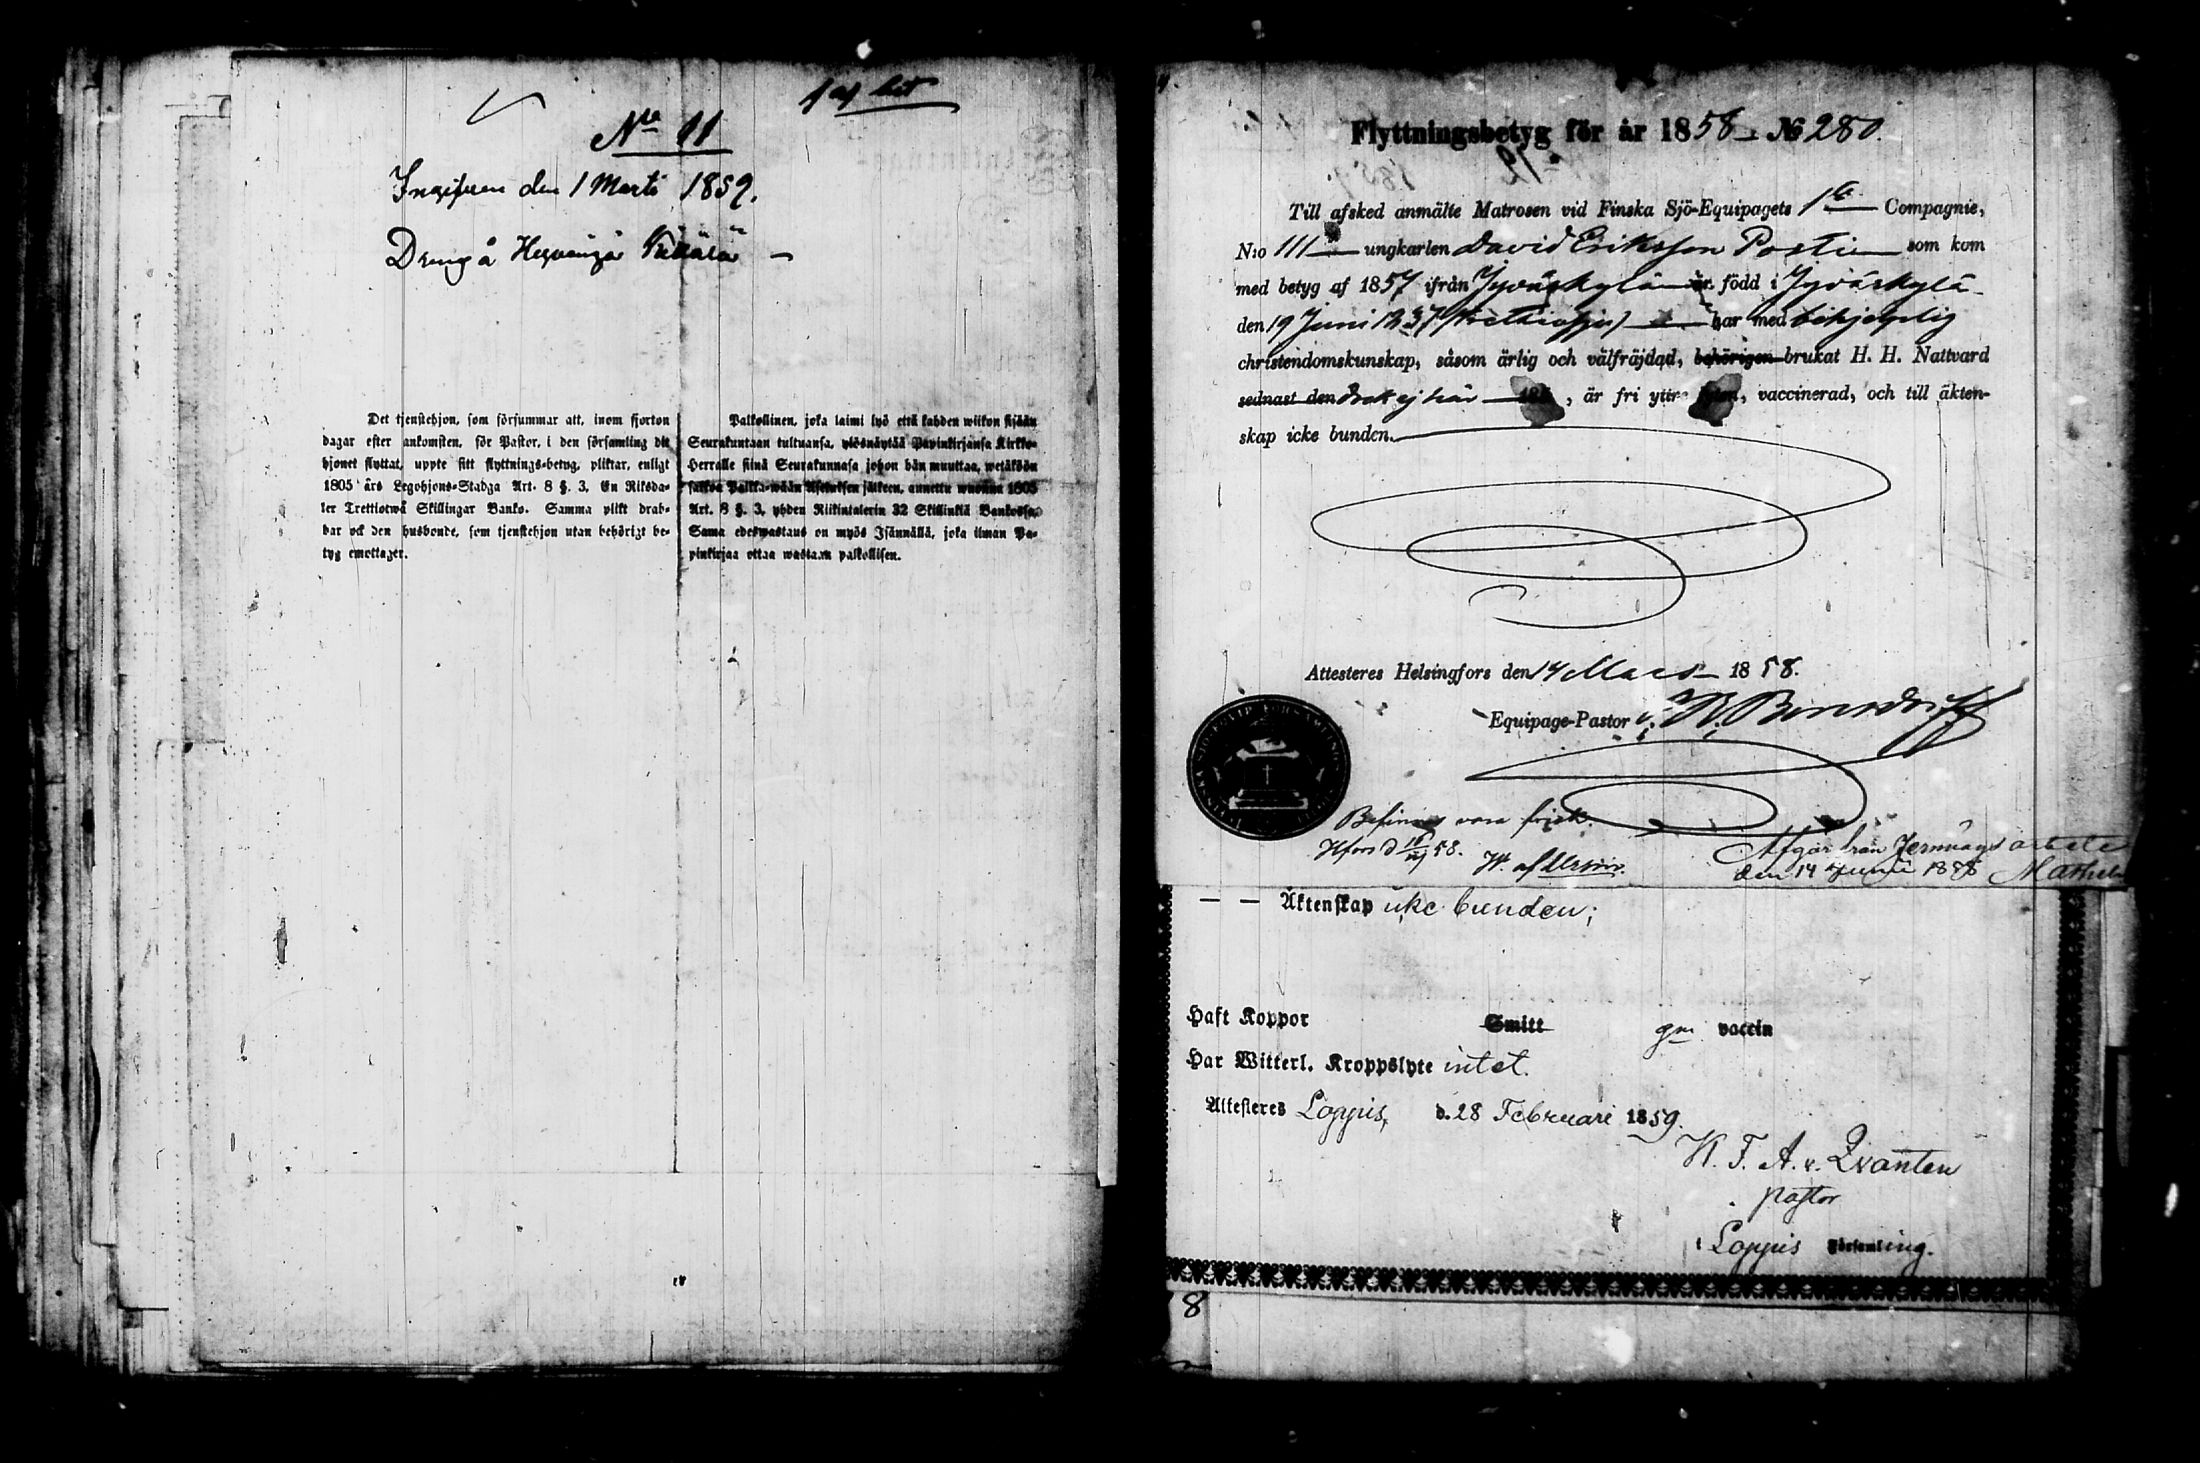 No 11
den 1 Marti 1859.
Dräng å
Det tjenstehjon, som försummar att, inom fjorton
dagar efter ankomsten, för Pastor, i den församling dit
hjonet flyttat, uppte sitt flyttnings-betyg, pliktar, enligt
1805 års Legohjons-Stadga Art. 8 §. 3, En Riksda-
ler Trettiotwå Skillingar Banko. Samma plikt drab-
bar ock den husbonde, som tjenstehjon utan behörigt be-
tyg emottager.
Palkollinen, joka laimi lyö että kahden wiikon sisään
Seurakuntaan tultuansa, ylösnäytää Papinkirjansa Kirkko-
Herralle siinä Seurakunnasa johon hän muuttaa, wetäköön
sakkoa Palkka-wään Asetuksen jälkeen, annettu wuonna 1805
Art. 8 §. 3, yhden Riikintalerin 32 Skillinkiä Bankossa.
Sama edeswastaus on myös Isännällä, joka ilman Pa-
pinkirjaa ottaa wastaan palkollisen.
Flyttningsbetyg för år 1858 No 280.
Till afsked anmälte Matrosen vid Finska Sjö-Equipagets 1ta Compagnie,
N:o 111 ungkarlen David Eriksson Posti som kom
med betyg af 1857 ifrån Jyväskylä är född i Jyväskylä
den 19 Juni 1837 har med
christendomskunskap, såsom ärlig och välfräjdad, behörigen brukat H. H. Nattvard
sednast den ej här 185 , är fri yttre , vaccinerad, och till äkten-
skap icke bunden.
Attesteres Helsingfors den 14 Mars 1858.
Equipage-Pastor
Befinnes vara frisk.
Hfors d 58.
Afgår från Jernvägs arbete
den 14 Junii 1858
Äktenskap icke bunden;
Haft Koppor Smitt gm vaccin
Har Witterl. Kroppslyte intet.
Attesteres Loppis, d. 28 Februari 1859.
H. F. A. v. Qvanten
pastor
i Loppis Församling.
8